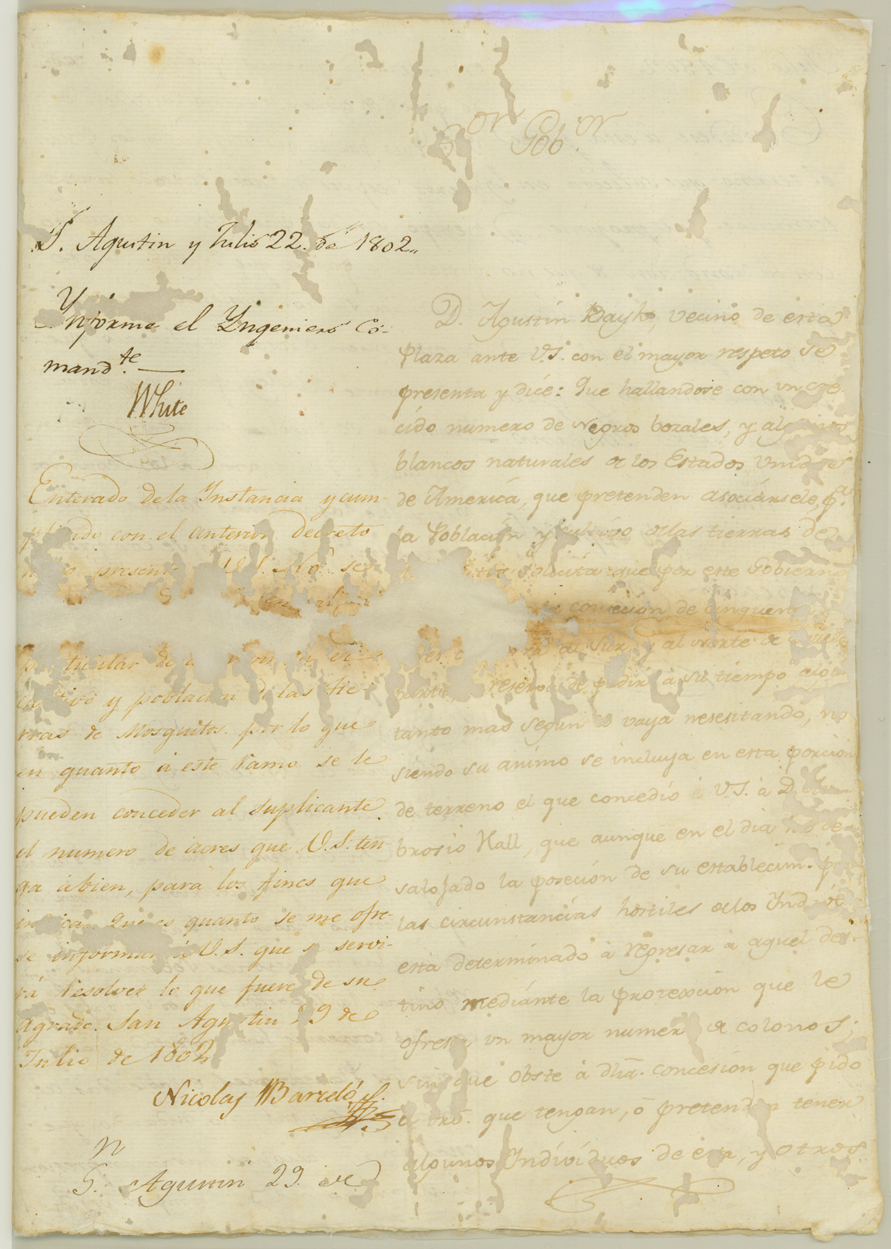 S.or Gob.or
S. Agustin y Julio 22. de 1802,,
Ynforme el Yngeniero Co-
mand.te
White
Enterado de la Instancia y cum-
plido con el anterior decreto
presente V.S. No se
particular de
cultivo y poblacion de las tie-
rras de Mosquito. por lo que
en quanto á este Ramo se le
pueden conceder al suplicante
el numero de acres que V.S. ten
ga á bien, para los fines que
indica. Que es quanto se me ofre-
se informar á V.S. que se servi-
rá resolver lo que fuere de su
agrado. San Agustin 29 de
Julio de 1802
Nicolas Barceló
S. Agustin 29. de
D. Agustin, vecino de esta
Plaza ante V.S. con el mayor respeto se
presenta y dice: Que hallandose con un cre
cido numero de Negros bozales, y algunos
blancos naturales de los Estados Unidos
de America, que pretenden asociarsele, p.a
la Poblacion y cultivo de las tierras de
solicita que por este Gobierno
concecion de cinquenta
al Sur, y al norte de
reserva de pedir á su tiempo
tanto mas segun lo vaya nesesitando, no
siendo su animo se incluya en esta porcion
de terreno el que concedió V.S. á D. Am-
brosio Hall, que aunque en el dia ha de-
salojado la poseción de su establecim.to p.r
las circunstancias hostiles de los Indios
esta determinado á regresar á aquel des-
tino mediante la protexcion que le
ofrese un mayor numero de colonos;
sin que obste á dha. concesion que pido
otro que tengan, ó pretendan tener
algunos Individuos de esta, y otros